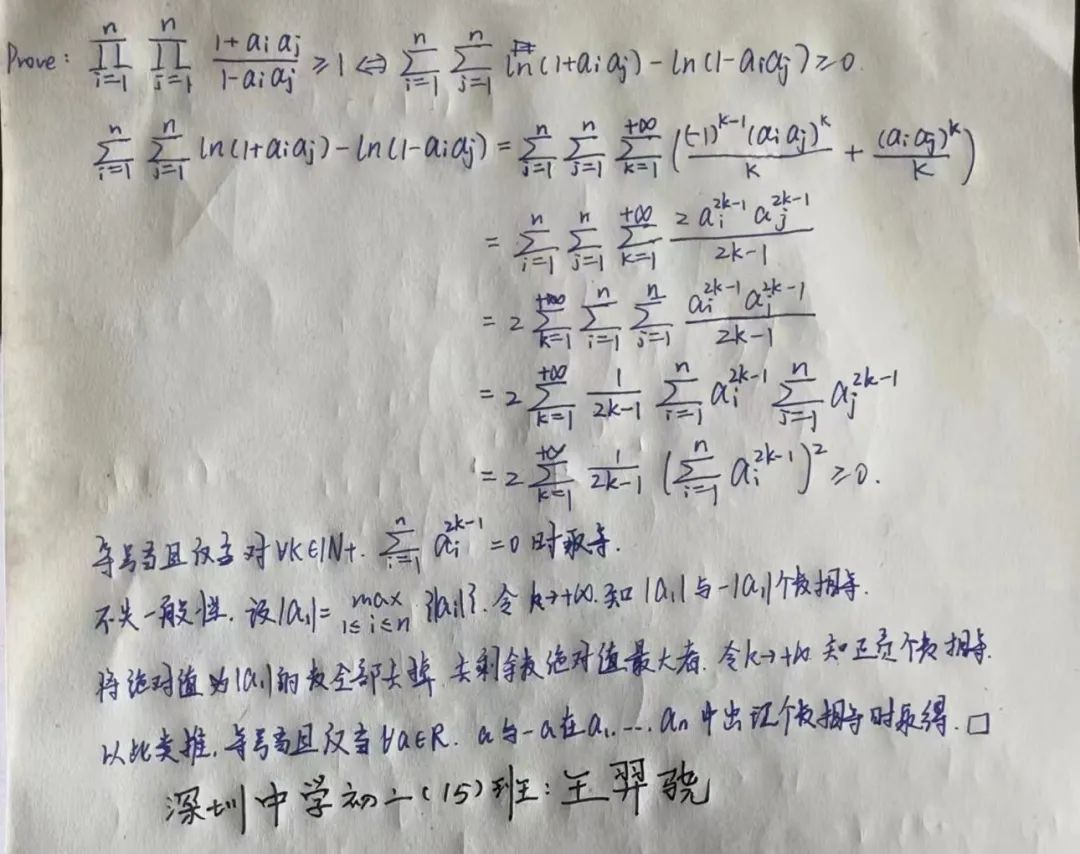 Prove: $\prod_{i=1}^{n} \prod_{j=1}^{n} \frac{1+a_i a_j}{1-a_i a_j} \geq 1 \Leftrightarrow \sum_{i=1}^{n} \sum_{j=1}^{n} \ln(1+a_i a_j) - \ln(1-a_i a_j) \geq 0.$
$\sum_{i=1}^{n} \sum_{j=1}^{n} \ln(1+a_i a_j) - \ln(1-a_i a_j) = \sum_{i=1}^{n} \sum_{j=1}^{n} \sum_{k=1}^{+\infty} \left( \frac{(-1)^{k-1} (a_i a_j)^k}{k} + \frac{(a_i a_j)^k}{k} \right)$
$= \sum_{i=1}^{n} \sum_{j=1}^{n} \sum_{k=1}^{+\infty} \frac{2 a_i^{2k-1} a_j^{2k-1}}{2k-1}$
$= 2 \sum_{k=1}^{+\infty} \sum_{i=1}^{n} \sum_{j=1}^{n} \frac{a_i^{2k-1} a_j^{2k-1}}{2k-1}$
$= 2 \sum_{k=1}^{+\infty} \frac{1}{2k-1} \sum_{i=1}^{n} a_i^{2k-1} \sum_{j=1}^{n} a_j^{2k-1}$
$= 2 \sum_{k=1}^{+\infty} \frac{1}{2k-1} \left( \sum_{i=1}^{n} a_i^{2k-1} \right)^2 \geq 0.$
等号当且仅当对 $\forall k \in \mathbb{N}+.$ $\sum_{i=1}^{n} a_i^{2k-1} = 0$ 时取等.
不失一般性. 设 $|a_1| = \max_{1 \leq i \leq n} \{|a_i|\}$. 令 $k \to +\infty$. 知 $|a_1|$ 与 $-|a_1|$ 个数相等.
将绝对值为 $|a_1|$ 的数全部去掉. 去剩余数绝对值最大者. 令 $k \to +\infty$ 知正负个数相等.
以此类推, 等号当且仅当 $\forall a \in R.$ $a$ 与 $-a$ 在 $a_1, \dots, a_n$ 中出证个数相等时取得. □
深圳中学初二(15)班: 王羿骁